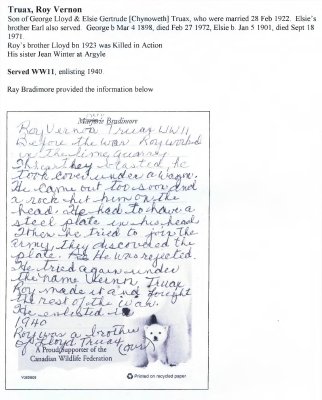 Truax, Roy Vernon
Son of George Lloyd & Elsie Gertrude [Chynoweth] Truax, who were married 28 Feb 1922.  Elsie's
brother Earl also served.  George b Mar 4 1898, died Feb 27 1972, Elsie b. Jan 5 1901, died Sept 18
1971.
Roy's brother Lloyd bn 1923 was Killed in Action
His sister Jean Winter at Argyle
Served WW11, enlisting 1940
Ray Bradimore provided the information below
Marjorie Bradimore
Roy Vernon Truax WW11
Before the war Roy worked
in the lime quarry
they blasted, he
took cover under a wagon.
He came out too soon and
a rock hit him on the
head. He had to have a
steel plate in his head
When he tried to join the
army, they discovered the
plate. He was rejected.
He tried again under
the name Vernon Truax
Roy made it and fought
the rest of the war.
He enlisted in
1940
Roy was a brother
of Lloyd Truax
(over)
A Proud Supporter of the
Canadian Wildlife Federation
Printed on recycled paper